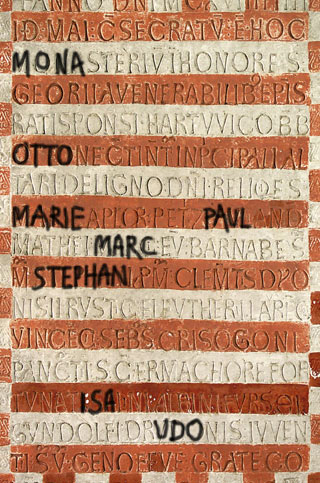 ANNO DNI M C
ID MAI C SECRATV E HOC
MONASTERIV I HONORE S
GEORII A VENERABILIB EPIS
RATISPONSI HARTVVICO BB
OTTONE CTINT IN PCIPALI AL
TARI DE LIGNO DNI RELIQE S
MARIE APLOR PET PAUL AND
MATHEI MARC EV BARNABE S
M STEPHANI PM CLEMTS DYO
NISII RVSTC ELEVTHERII LAR C
VINCEC SEBS CRISOGONI
PANC TIS C ERMACHORE FOR
TVNATI ISA
GVNDOLFI D UDONIS IVVEN
TI SV GENOFEVE GRATE CO